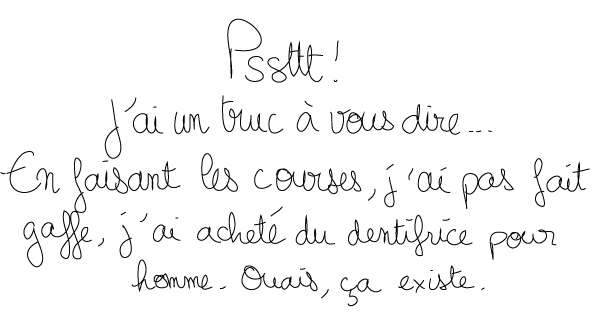 Psssttt !
J'ai un truc à vous dire...
En faisant les courses, j'ai pas fait
gaffe, j'ai acheté du dentifrice pour
homme. Ouais, ça existe.